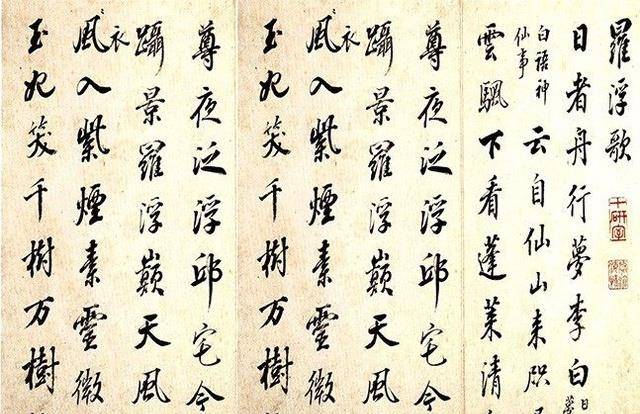 羅浮歌
十研室
日者舟行夢李白
白語神仙事
云自仙山来咫
雲颿下看蓬莱清
尊夜泛浮邱宅今
躡景羅浮巔天風
衣
風入紫煙素靈微
玉妃笑千樹万樹
尊夜泛浮邱宅今
躡景羅浮巔天風
衣
風入紫煙素靈微
玉妃笑千樹万樹